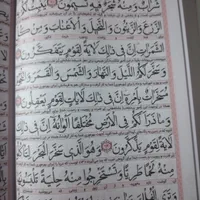 شَرَابٌ وَمِنْهُ شَجَرٌ فِيهِ تُسِيمُونَ يُنْبِتُ لَكُمْ
الزَّرْعَ وَالزَّيْتُونَ وَالنَّخِيلَ وَالْأَعْنَابَ وَمِنْ كُلِّ
الثَّمَرَاتِ إِنَّ فِي ذَٰلِكَ لَآيَةً لِقَوْمٍ يَتَفَكَّرُونَ
وَسَخَّرَ لَكُمُ اللَّيْلَ وَالنَّهَارَ وَالشَّمْسَ وَالْقَمَرَ
مُسَخَّرَاتٌ بِأَمْرِهِ إِنَّ فِي ذَٰلِكَ لَآيَاتٍ لِقَوْمٍ يَعْقِلُونَ
وَمَا ذَرَأَ لَكُمْ فِي الْأَرْضِ مُخْتَلِفًا أَلْوَانُهُ إِنَّ فِي ذَٰلِكَ
لَآيَةً لِقَوْمٍ يَذَّكَّرُونَ وَهُوَ الَّذِي سَخَّرَ الْبَحْرَ لِتَأْكُلُوا
مِنْهُ لَحْمًا طَرِيًّا وَتَسْتَخْرِجُوا مِنْهُ حِلْيَةً تَلْبَسُونَهَا
وَتَرَى الْفُلْكَ